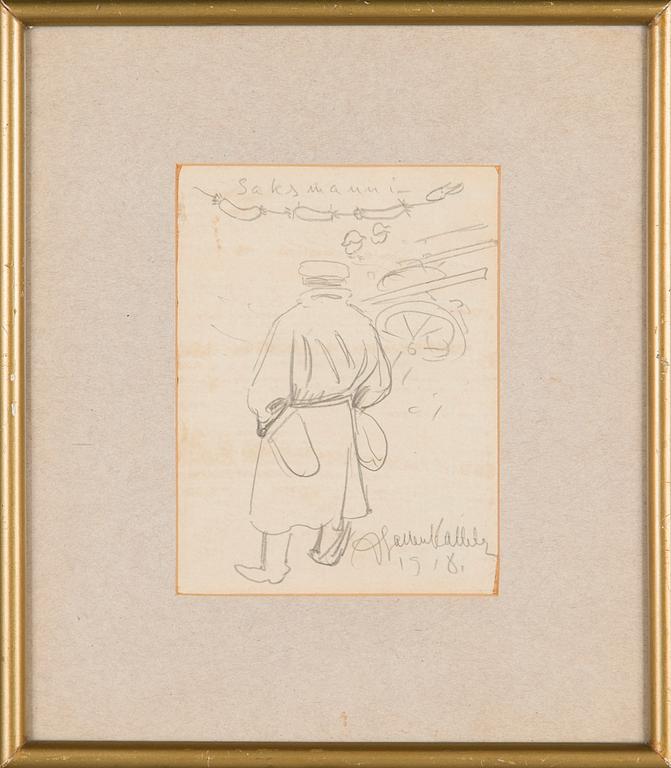 Saksmanni
A Gallen Kallela
1918.